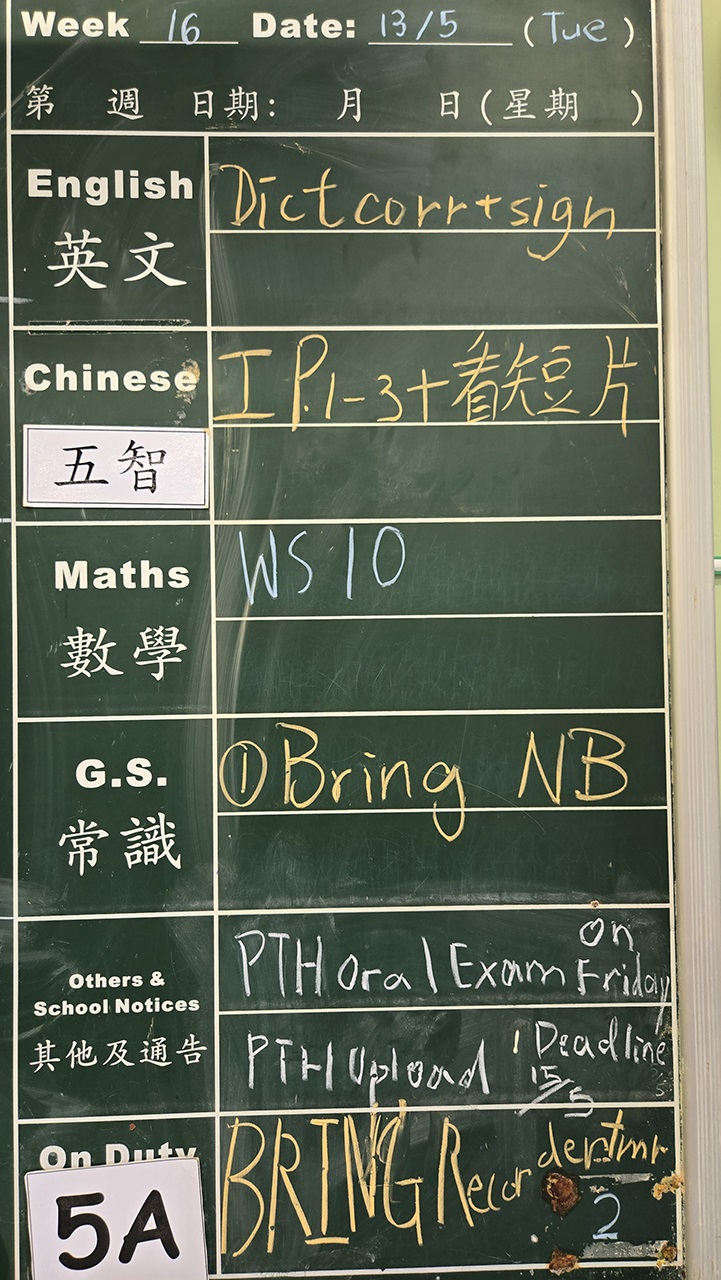 Week 16 Date: 13/5 (Tue)
第 週 日期: 月 日(星期 )
English
英文
Dict corr + sign
Chinese
五智
工 P.1-3+看短片
Maths
數學
WS 10
G.S.
常識
①Bring NB
Others &
School Notices
其他及通告
PTH Oral Exam on Friday
PTH Upload ! Deadline 15/5
On Duty
5A
BRING Recorder tmr
2